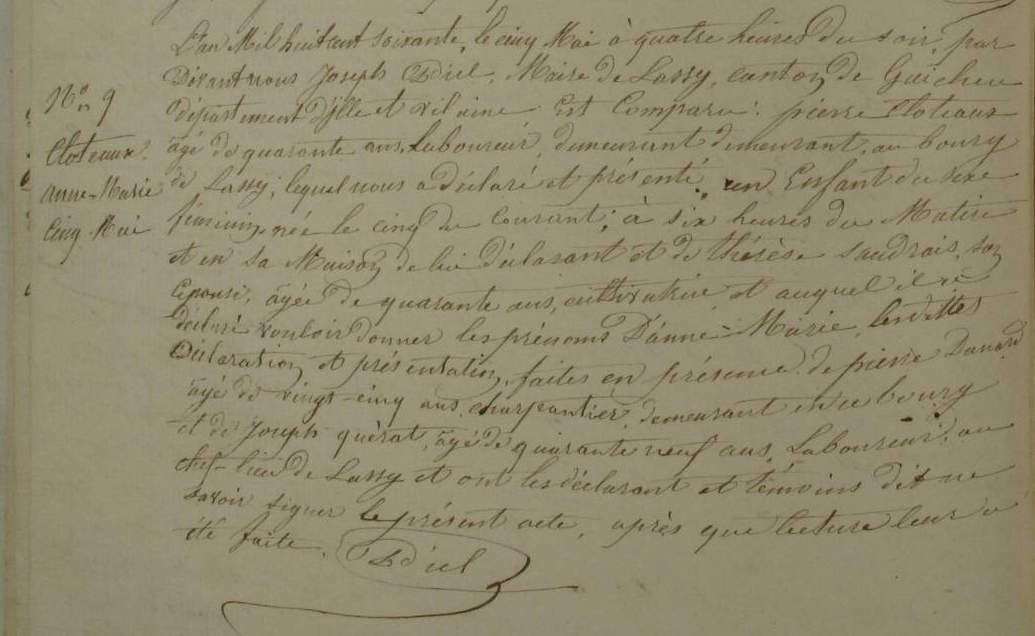 Nº 9
Cloteaux
anne-Marie
Cinq Mai
L'an Mil huit cent soixante, le cinq Mai à quatre heures du soir, par
Devant nous Joseph Diel, Maire de Lassy, canton de Guichen
département d'ille et vilaine Est Comparu : pierre Cloteaux
âgé de quarante ans, Laboureur, demeurant demeurant, au bourg
de Lassy, lequel nous a déclaré et présenté un Enfant du sexe
féminin, née le cinq du Courant, à six heures du Matin
et en sa Maison, de lui déclarant et de thérèse saudrais, son
Epouse, âgée de quarante ans, cultivatrice et auquel il a
déclaré vouloir donner les prénoms D'anne-Marie, lesdittes
Déclaration et présentation, faites en présence de pierre Danard
âgé de vingt-cinq ans, charpantier, demeurant en ce bourg
et de Joseph quérat, âgé de quarante neuf ans, Laboureur, au
chef-lieu de Lassy et ont les déclarant et témoins dit ne
savoir signer le présent acte, après que lecture leur a
été faite.
Diel